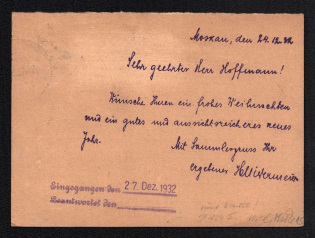 Moskau, den 24.12.32
Sehr geehrter Herr Hoffmann!
Wünsche Ihnen ein frohes Weihnachten
und ein gutes und aussichtsreicheres neues
Jahr.
Mit Sammlergruss Ihr
ergebener
Eingegangen den 27. Dez. 1932
Beantwortet den